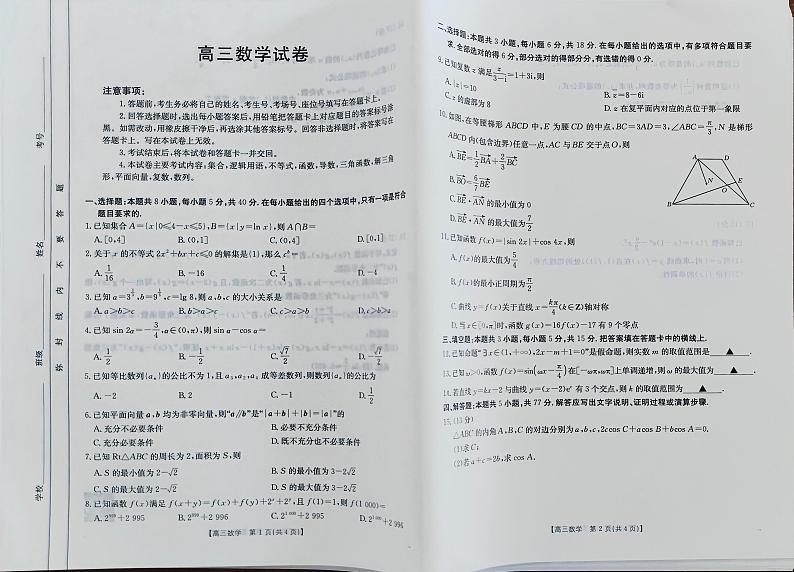 高三数学试卷
注意事项：
1.答题前,考生务必将自己的姓名、考生号、考场号、座位号填写在答题卡上.
2.回答选择题时,选出每小题答案后,用铅笔把答题卡上对应题目的答案标号涂
黑。如需改动,用橡皮擦干净后,再选涂其他答案标号。回答非选择题时,将答案写在
答题卡上。写在本试卷上无效。
3.考试结束后,将本试卷和答题卡一并交回。
4.本试卷主要考试内容:集合,逻辑用语,不等式,函数,导数,三角函数,解三角
形,平面向量,复数,数列。
一、选择题:本题共8小题,每小题5分,共40分.在每小题给出的四个选项中,只有一项是符合
题目要求的.
1.已知集合A={x|0≤4-x≤5},B={x|y=ln x},则A∩B=
A.[0,4] B.(0,1] C.(0,4] D.[0,1]
2.关于x的不等式2x²+bx+c≤0的解集是{1},那么c^b=
A. 1/16 B.-16 C. 1/4 D.-4
3.已知
c=lg 8,则a,b,c的大小关系是
A.a>b>c B.b>a>c C.c>a>b D.c>b>a
4.已知sin 2α=-3/4,α∈(0,π),则sin α-cos α=
A. 1/2 B.-1/2 C. √7/2 D.-√7/2
5.已知等比数列{aₙ}的公比不为1,且
成等差数列,则数列{aₙ}的公比为
A.-2 B.2 C.-1 D. 1/2
6.已知平面向量a,b均为非零向量,则“a//b”是“|a+b|+|b|=|a|”的
A.充分不必要条件 B.必要不充分条件
C.充分必要条件 D.既不充分也不必要条件
7.已知Rt△ABC的周长为2,面积为S,则
A.S的最小值为2-√2 B.S的最小值为3-2√2
C.S的最大值为2-√2 D.S的最大值为3-2√2
8.已知函数f(x)满足f(x+y)=f(x)+f(y)+2ˣ+2ʸ,且f(1)=1,则f(1 000)=
A.2⁹⁹⁹+2 995 B.2⁹⁹⁹+2 996 C.2¹⁰⁰⁰+2 995 D.2¹⁰⁰⁰+2 996
【高三数学 第1页(共4页)】
二、选择题:本题共3小题,每小题6分,共18分.在每小题给出的选项中,有多项符合题目要
求.全部选对的得6分,部分选对的得部分分,有选错的得0分.
9.已知复数z满足z/(3-i)=1+3i,则
A.|z|=10 B.z=8-6i
C.z的虚部为8 D.z在复平面内对应的点位于第一象限
10.如图,在等腰梯形ABCD中,E为腰CD的中点,BC=3AD=3,∠ABC=π/3,N是梯形
ABCD内(包含边界)任意一点,AC与BE交于点O,则
A.BE=1/2BA+2/3BC
B.BO=6/7BE
C.BE·AN的最小值为0
D.BE·AN的最大值为7/2
A
D
N
E
O
B
C
11.已知函数f(x)=|sin 2x|+cos 4x,则
A.f(x)的最大值为5/4
B.f(x)的最小正周期为π/2
C.曲线y=f(x)关于直线x=kπ/4(k∈Z)轴对称
D.当x∈[0,π]时,函数g(x)=16f(x)-17有9个零点
三、填空题:本题共3小题,每小题5分,共15分.把答案填在答题卡中的横线上.
12.已知命题“∃x∈(1,+∞),2x-m+1=0”是假命题,则实数m的取值范围是 ▲ .
13.已知ω>0,函数f(x)=sin(ωx-π/4)在[-ωπ,ωπ]上单调递增,则ω的最大值为 ▲ .
14.若直线y=kx-2与曲线y=(x-2)eˣ有3个交点,则k的取值范围为 ▲ .
四、解答题:本题共5小题,共77分.解答应写出文字说明、证明过程或演算步骤.
15.(13分)
△ABC的内角A,B,C的对边分别为a,b,c,2ccos C+acos B+bcos A=0.
(1)求C;
(2)若a+c=2b,求cos A.
【高三数学 第2页(共4页)】
考号
姓名
班级
学校
题
答
要
不
内
线
封
弥